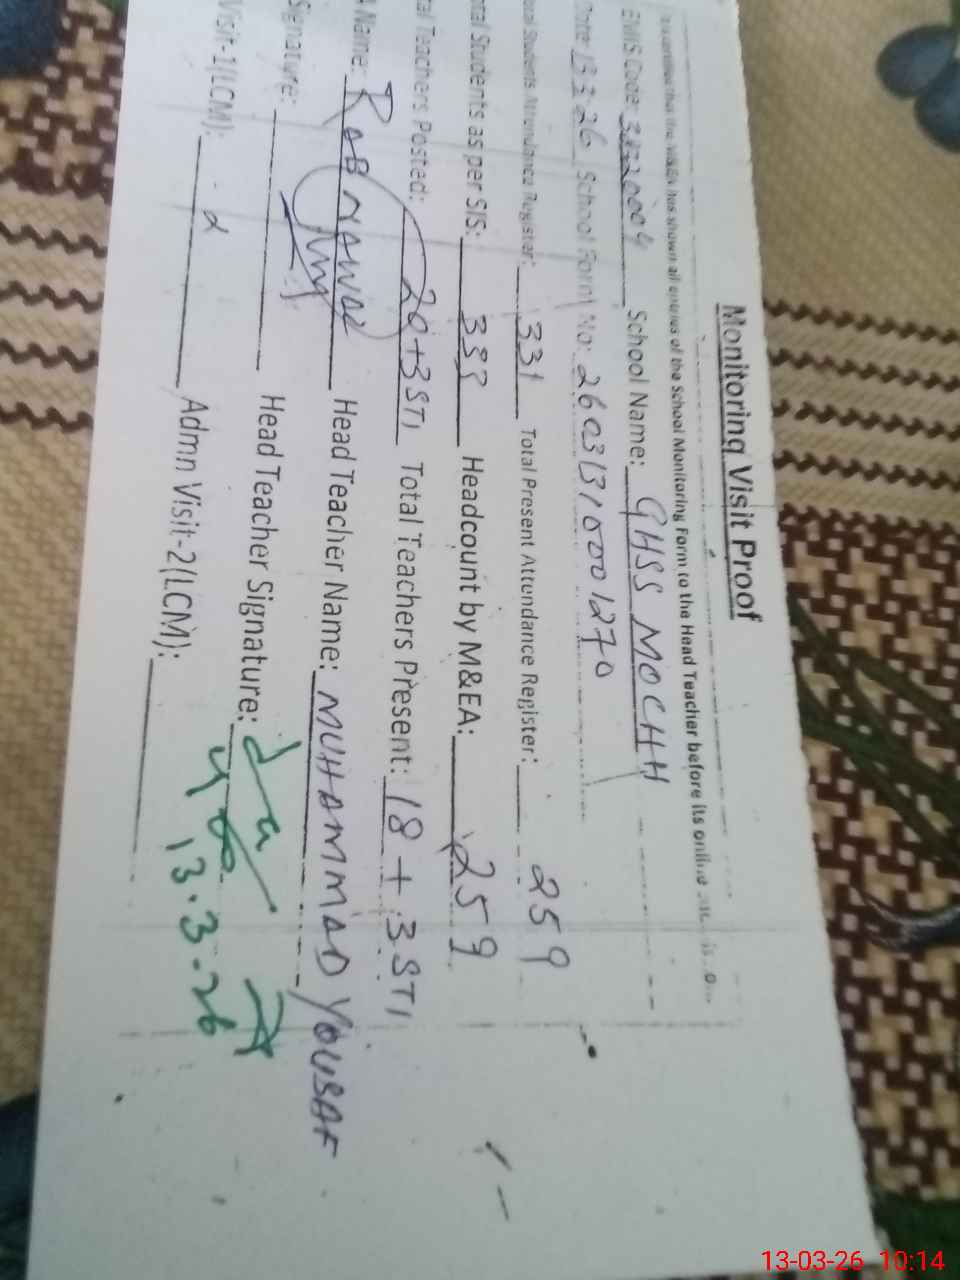 Monitoring Visit Proof
has shown all entries of the School Monitoring Form to the Head Teacher before its online
EMIS Code: School Name: GHSS MOCHH
Date: 13 3 26 School Form No: 26031310001270
Students Attendance Register: 331 Total Present Attendance Register: 259
Students as per SIS: 333 Headcount by M&EA: 259
Teachers Posted: 20+3STI Total Teachers Present: 18 + 3STI
Name: RAB NAWAZ Head Teacher Name: MUHAMMAD YOUSAF
Signature: Head Teacher Signature:
Visit-1(LCM): 2 Admn Visit-2(LCM):
13.3.26
13-03-26 10:14